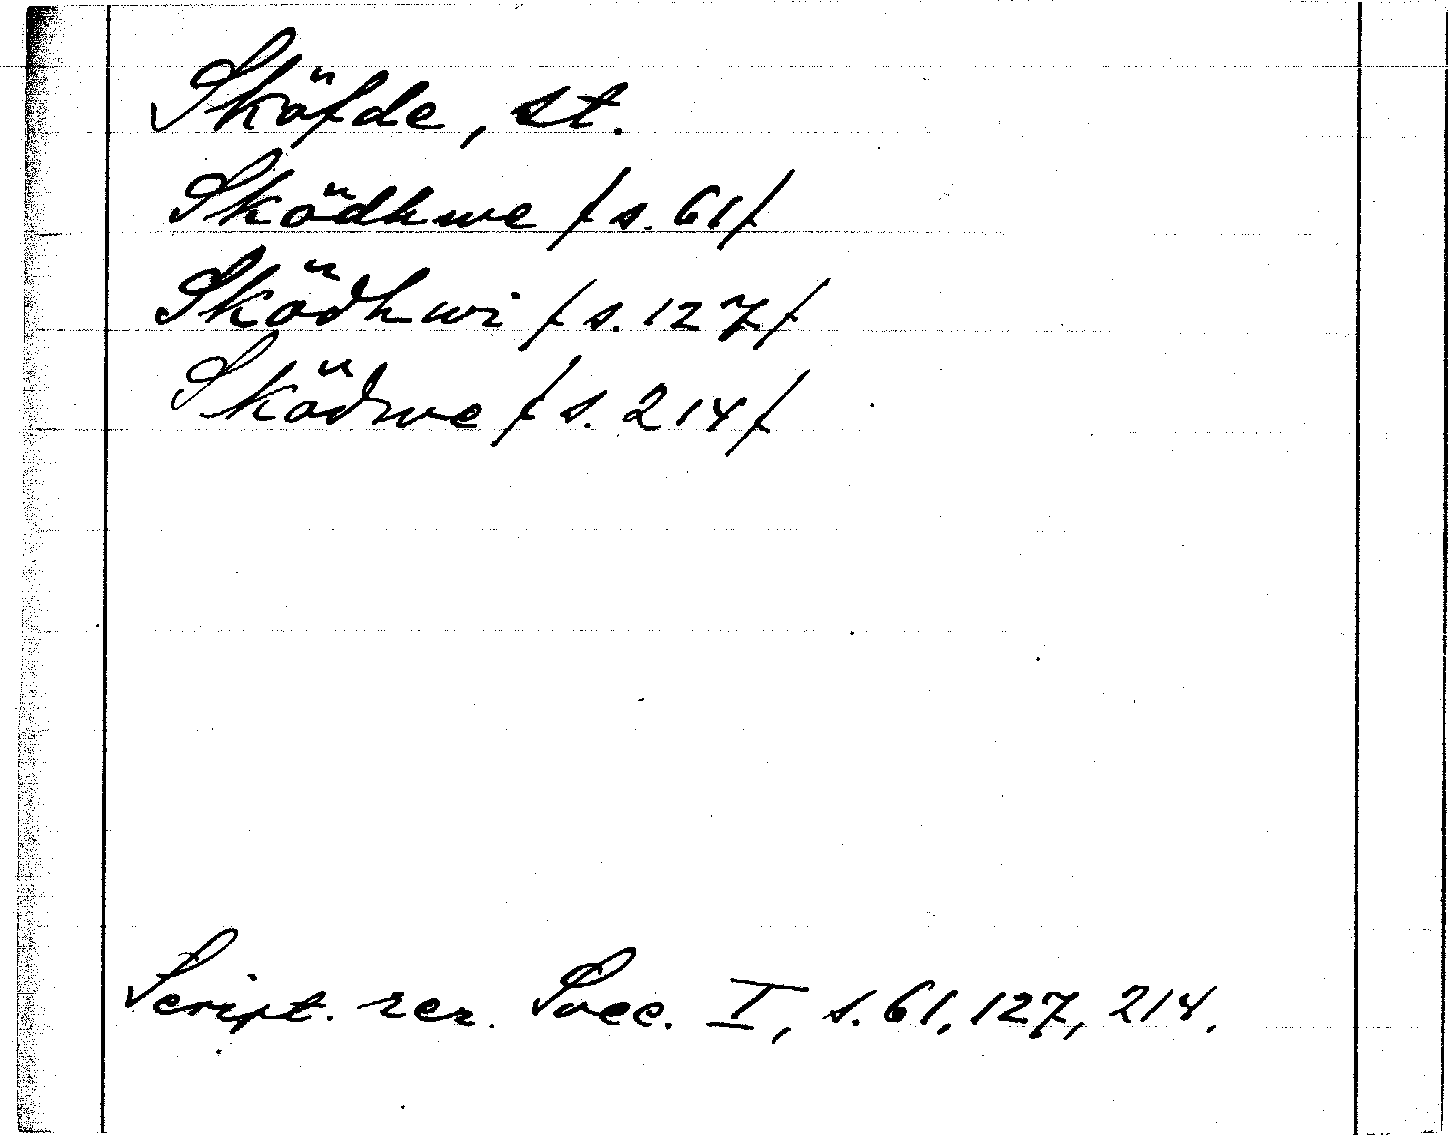 Sköfde, st.
Sködhwe /s. 61/
Sködhwi /s. 127/
Sködwe /s. 214/
Script. rer. Svec. I, s. 61, 127, 214.